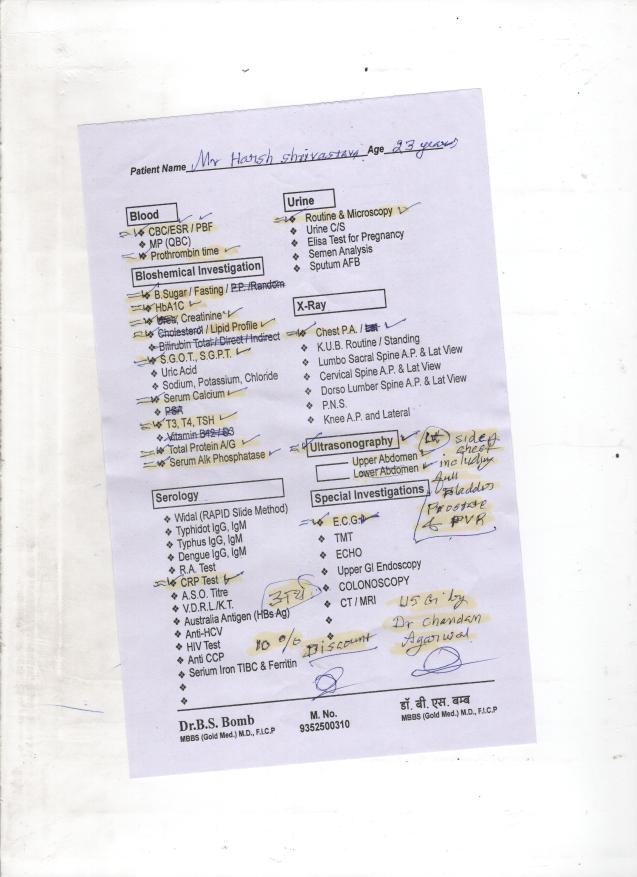 Patient Name Mr Harsh Shrivastava Age 23 years
Blood
CBC/ESR / PBF
MP (QBC)
Prothrombin time
Bioshemical Investigation
B.Sugar / Fasting / P.P. /Random
HbA1C
Urea, Creatinine
Cholesterol / Lipid Profile
Bilirubin Total / Direct / Indirect
S.G.O.T., S.G.P.T.
Uric Acid
Sodium, Potassium, Chloride
Serum Calcium
PSA
T3, T4, TSH
Vitamin B12 / D3
Total Protein A/G
Serum Alk Phosphatase
Serology
Widal (RAPID Slide Method)
Typhidot IgG, IgM
Typhus IgG, IgM
Dengue IgG, IgM
R.A. Test
CRP Test
A.S.O. Titre
V.D.R.L/K.T.
Australia Antigen (HBs Ag)
Anti-HCV
HIV Test
Anti CCP
Serium Iron TIBC & Ferritin
10 % Discount
Urine
Routine & Microscopy
Urine C/S
Elisa Test for Pregnancy
Semen Analysis
Sputum AFB
X-Ray
Chest P.A. /
K.U.B. Routine / Standing
Lumbo Sacral Spine A.P. & Lat View
Cervical Spine A.P. & Lat View
Dorso Lumber Spine A.P. & Lat View
P.N.S.
Knee A.P. and Lateral
Ultrasonography
Upper Abdomen
Lower Abdomen
side
chest
including
full
Bladder
Prostate
& PVR
Special Investigations
E.C.G.
TMT
ECHO
Upper GI Endoscopy
COLONOSCOPY
CT / MRI
USG by
Dr Chandan
Agarwal
Dr.B.S. Bomb
MBBS (Gold Med.) M.D., F.I.C.P
M. No.
9352500310
डॉ. बी. एस. बम्ब
MBBS (Gold Med.) M.D., F.I.C.P